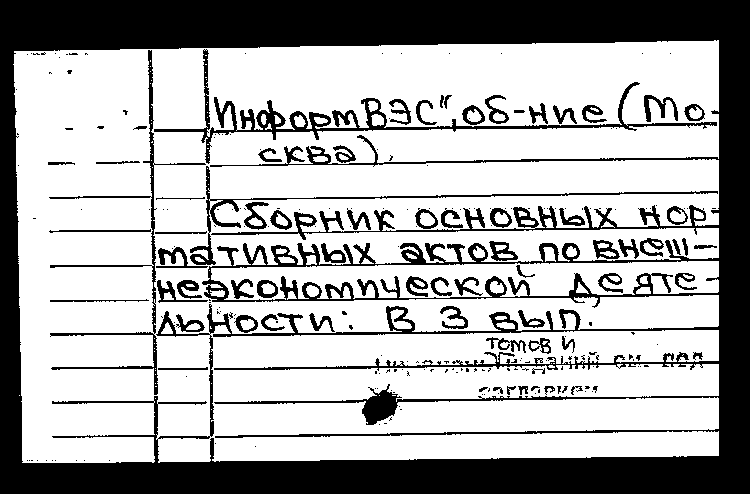 "ИнформВЭС", об-ние (Мо-
сква).
Сборник основных нор-
мативных актов по внеш-
неэкономической деяте-
льности: В 3 вып.
томов и
изданий см. под
заглавием